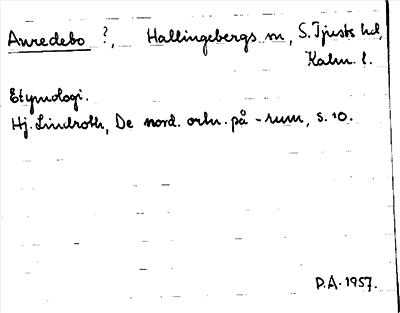 Anredebo ?, Hallingebergs sn, S. Tjusts hd,
Kalm. l.
Etymologi.
Hj. Lindroth, De nord. ortn. på -rum, s. 10.
D.A. 1957.